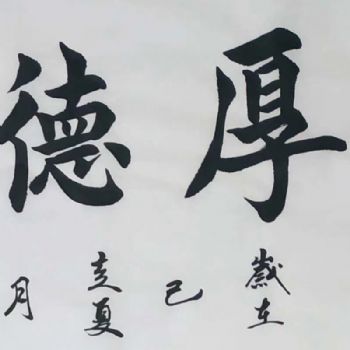 厚德
歲在己亥夏月